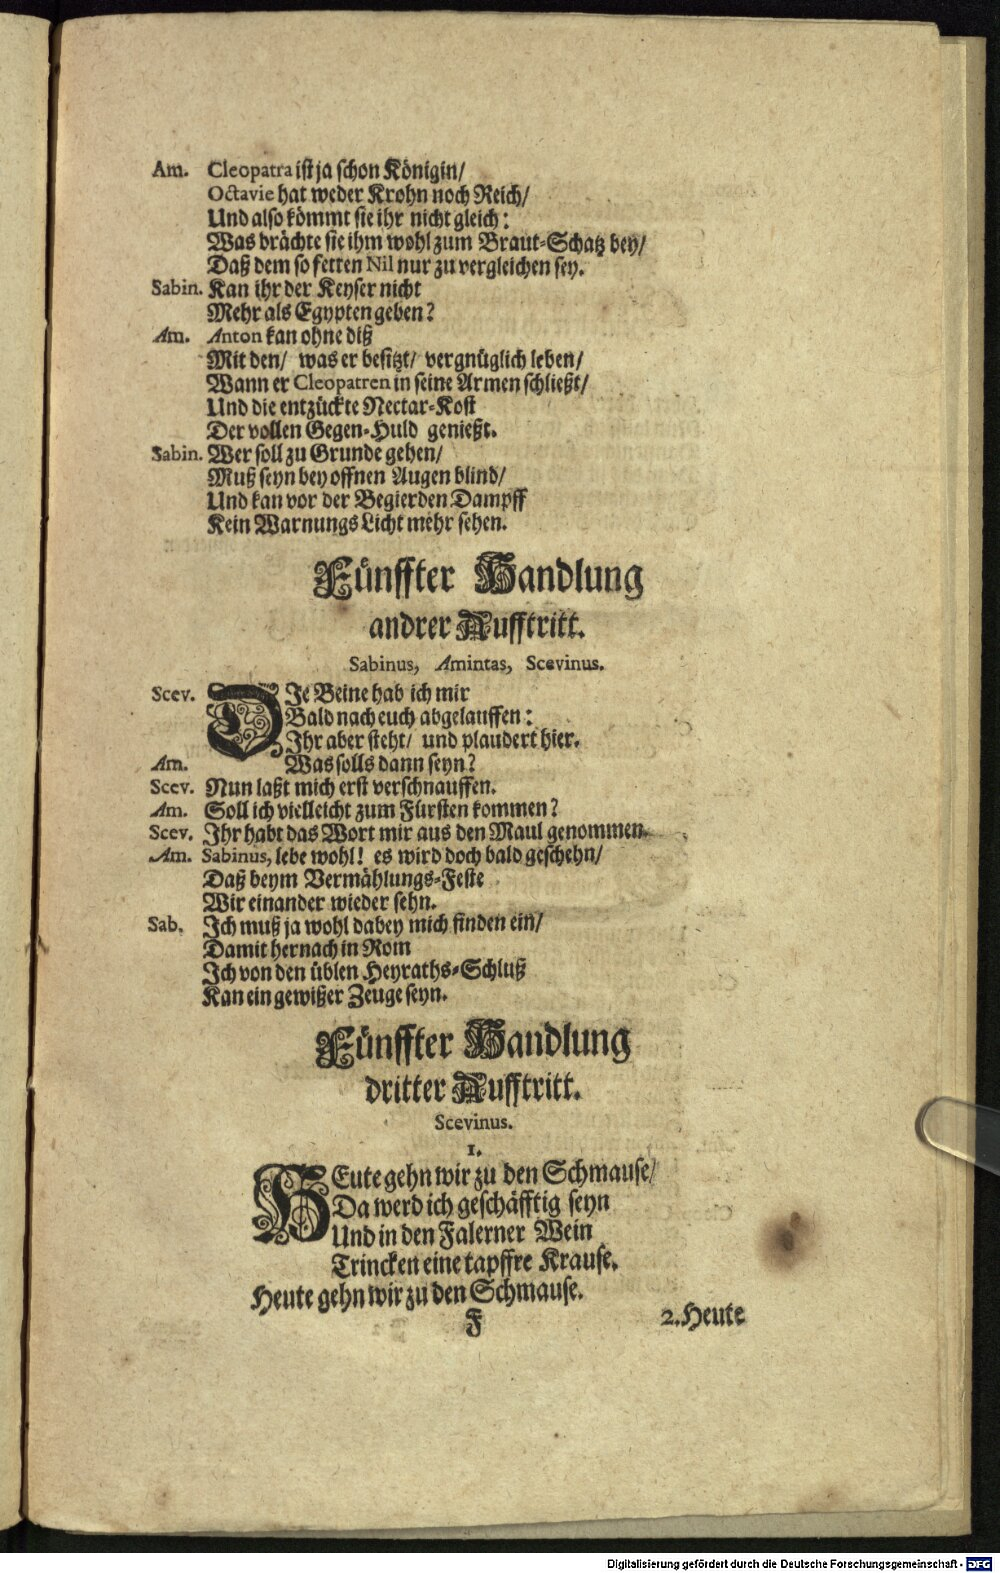 Am. Cleopatra ist ja schon Königin/
Octavie hat weder Krohn noch Reich/
Und also kömmt sie ihr nicht gleich:
Was brächte sie ihm wohl zum Braut-Schatz bey/
Daß dem so fetten Nil nur zu vergleichen sey.
Sabin. Kan ihr der Keyser nicht
Mehr als Egypten geben?
Am. Anton kan ohne diß
Mit den/ was er besitzt/ vergnüglich leben/
Wann er Cleopatren in seine Armen schließt/
Und die entzückte Nectar-Kost
Der vollen Gegen-Huld genießt.
Sabin. Wer soll zu Grunde gehen/
Muß seyn bey offnen Augen blind/
Und kan vor der Begierden Dampff
Kein Warnungs Licht mehr sehen.
Fünffter Handlung
andrer Aufftritt.
Sabinus, Amintas, Scevinus.
Scev. DIe Beine hab ich mir
Bald nach euch abgelauffen:
Ihr aber steht/ und plaudert hier.
Am. Was solls dann seyn?
Scev. Nun laßt mich erst verschnauffen.
Am. Soll ich vielleicht zum Fürsten kommen?
Scev. Ihr habt das Wort mir aus den Maul genommen.
Am. Sabinus, lebe wohl! es wird doch bald geschehn/
Daß beym Vermählungs-Feste
Wir einander wieder sehn.
Sab. Ich muß ja wohl dabey mich finden ein/
Damit hernach in Rom
Ich von den üblen Heyraths-Schluß
Kan ein gewißer Zeuge seyn.
Fünffter Handlung
dritter Aufftritt.
Scevinus.
1.
HEute gehn wir zu den Schmause/
Da werd ich geschäfftig seyn
Und in den Falerner Wein
Trincken eine tapffre Krause.
Heute gehn wir zu den Schmause.
F 2. Heute
Digitalisierung gefördert durch die Deutsche Forschungsgemeinschaft - DFG